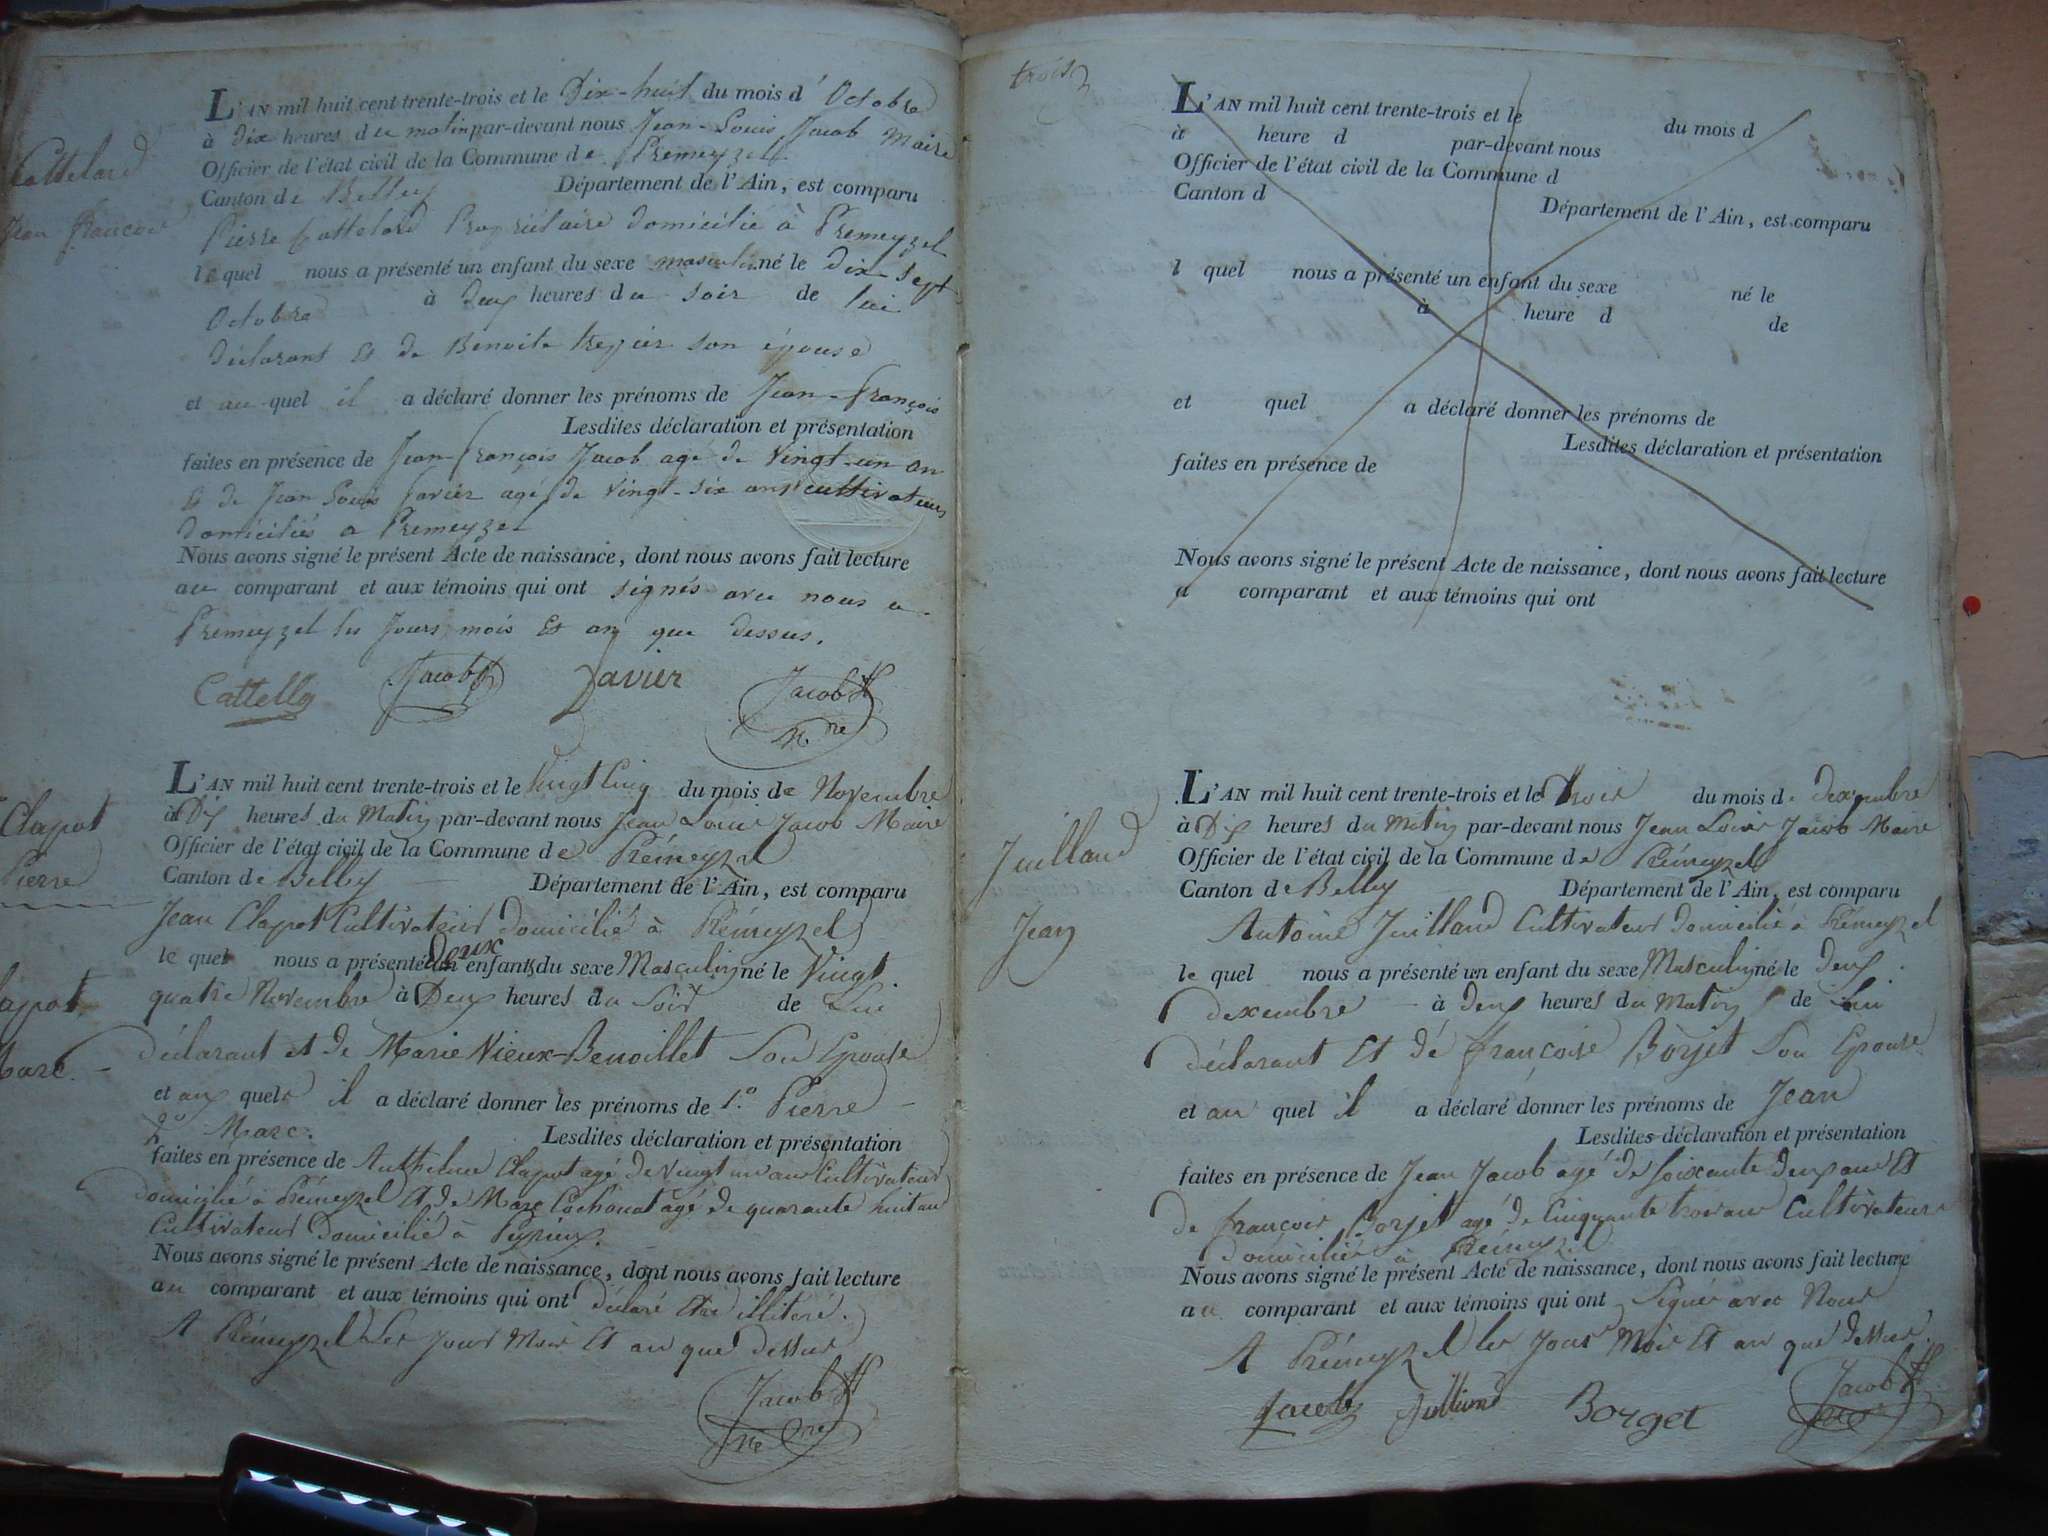 Cattelard
Jean François
L'AN mil huit cent trente-trois et le Dix-huit du mois d'Octobre
à dix heures du matin par-devant nous Jean-Louis Jacob Maire
Officier de l'état civil de la Commune de Premeyzel
Canton de Belley Département de l'Ain, est comparu
Pierre Cattelard Propriétaire domicilié à Premeyzel
lequel nous a présenté un enfant du sexe masculin né le dix-sept
Octobre à deux heures du soir de lui
déclarant et de Benoite son épouse
et au quel il a déclaré donner les prénoms de Jean-françois
Lesdites déclaration et présentation
faites en présence de Jean-françois Jacob agé de vingt-un an
et de Jean Louis Javier agé de vingt-six ans cultivateurs
domiciliés a Premeyzel
Nous avons signé le présent Acte de naissance, dont nous avons fait lecture
au comparant et aux témoins qui ont signés avec nous a
Premeyzel les Jours mois Et an que dessus.
Cattella Jacob Javier Jacob
Clapot
Pierre
Clapot
Marc
L'AN mil huit cent trente-trois et le vingt Cinq du mois de Novembre
à Dix heures du Matin par-devant nous Jean Louis Jacob Maire
Officier de l'état civil de la Commune de Prémeyzel
Canton de Belley Département de l'Ain, est comparu
Jean Clapot Cultivateur domicilié à Prémeyzel
le quel nous a présenté Deux enfants du sexe Masculin né le Vingt
quatre Novembre à Deux heures du Soir de Lui
déclarant et de Marie Vieux-Benoillet Son Epouse
et aux quels il a déclaré donner les prénoms de 1.° Pierre
2° Marc. Lesdites déclaration et présentation
faites en présence de Anthelme Clapot agé de vingt un an Cultivateur
domicilié à Prémeyzel Et de Marc Cochonat agé de quarante huit an
Cultivateur Domicilié à Peyrieux.
Nous avons signé le présent Acte de naissance, dont nous avons fait lecture
au comparant et aux témoins qui ont déclaré Etre illitéré.
A Prémeyzel Les Jour Mois Et an que dessus
Jacob
trois
L'AN mil huit cent trente-trois et le du mois d
à heure d par-devant nous
Officier de l'état civil de la Commune d
Canton d Département de l'Ain, est comparu
l quel nous a présenté un enfant du sexe né le
à heure d de
et quel a déclaré donner les prénoms de
Lesdites déclaration et présentation
faites en présence de
Nous avons signé le présent Acte de naissance, dont nous avons fait lecture
a comparant et aux témoins qui ont
Juilland
Jean
L'AN mil huit cent trente-trois et le trois du mois de dexembre
à Dix heures du Matin par-devant nous Jean Louis Jacob Maire
Officier de l'état civil de la Commune de Prémeyzel
Canton de Belley Département de l'Ain, est comparu
Antoine Juilland Cultivateur domicilié à Prémeyzel
le quel nous a présenté un enfant du sexe Masculin né le deux
dexembre à deux heures du Matin de Lui
déclarant Et dé françoise Borjet Son Epouse
et au quel il a déclaré donner les prénoms de Jean
Lesdites déclaration et présentation
faites en présence de Jean Jacob agé de Soixante deux ans Et
de françois Borjet agé de Cinquante trois ans Cultivateurs
domiciliés à Prémeyzel
Nous avons signé le présent Acte de naissance, dont nous avons fait lecture
au comparant et aux témoins qui ont Signés avec Nous
A Prémeyzel les Jour Mois Et an qué dessus.
Jacob Julliand Borget Jacob